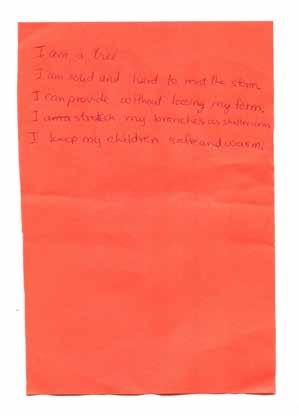 I am a tree
I am solid and hard to meet the storm
I can provide without loosing my form.
I stretch my branches as shelter
I keep my children safe and warm.